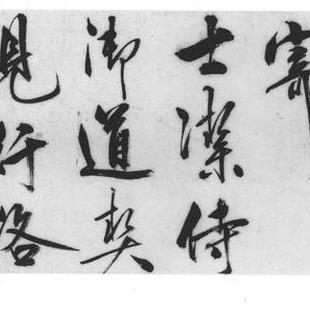 寄
士潔侍
御道契
見行